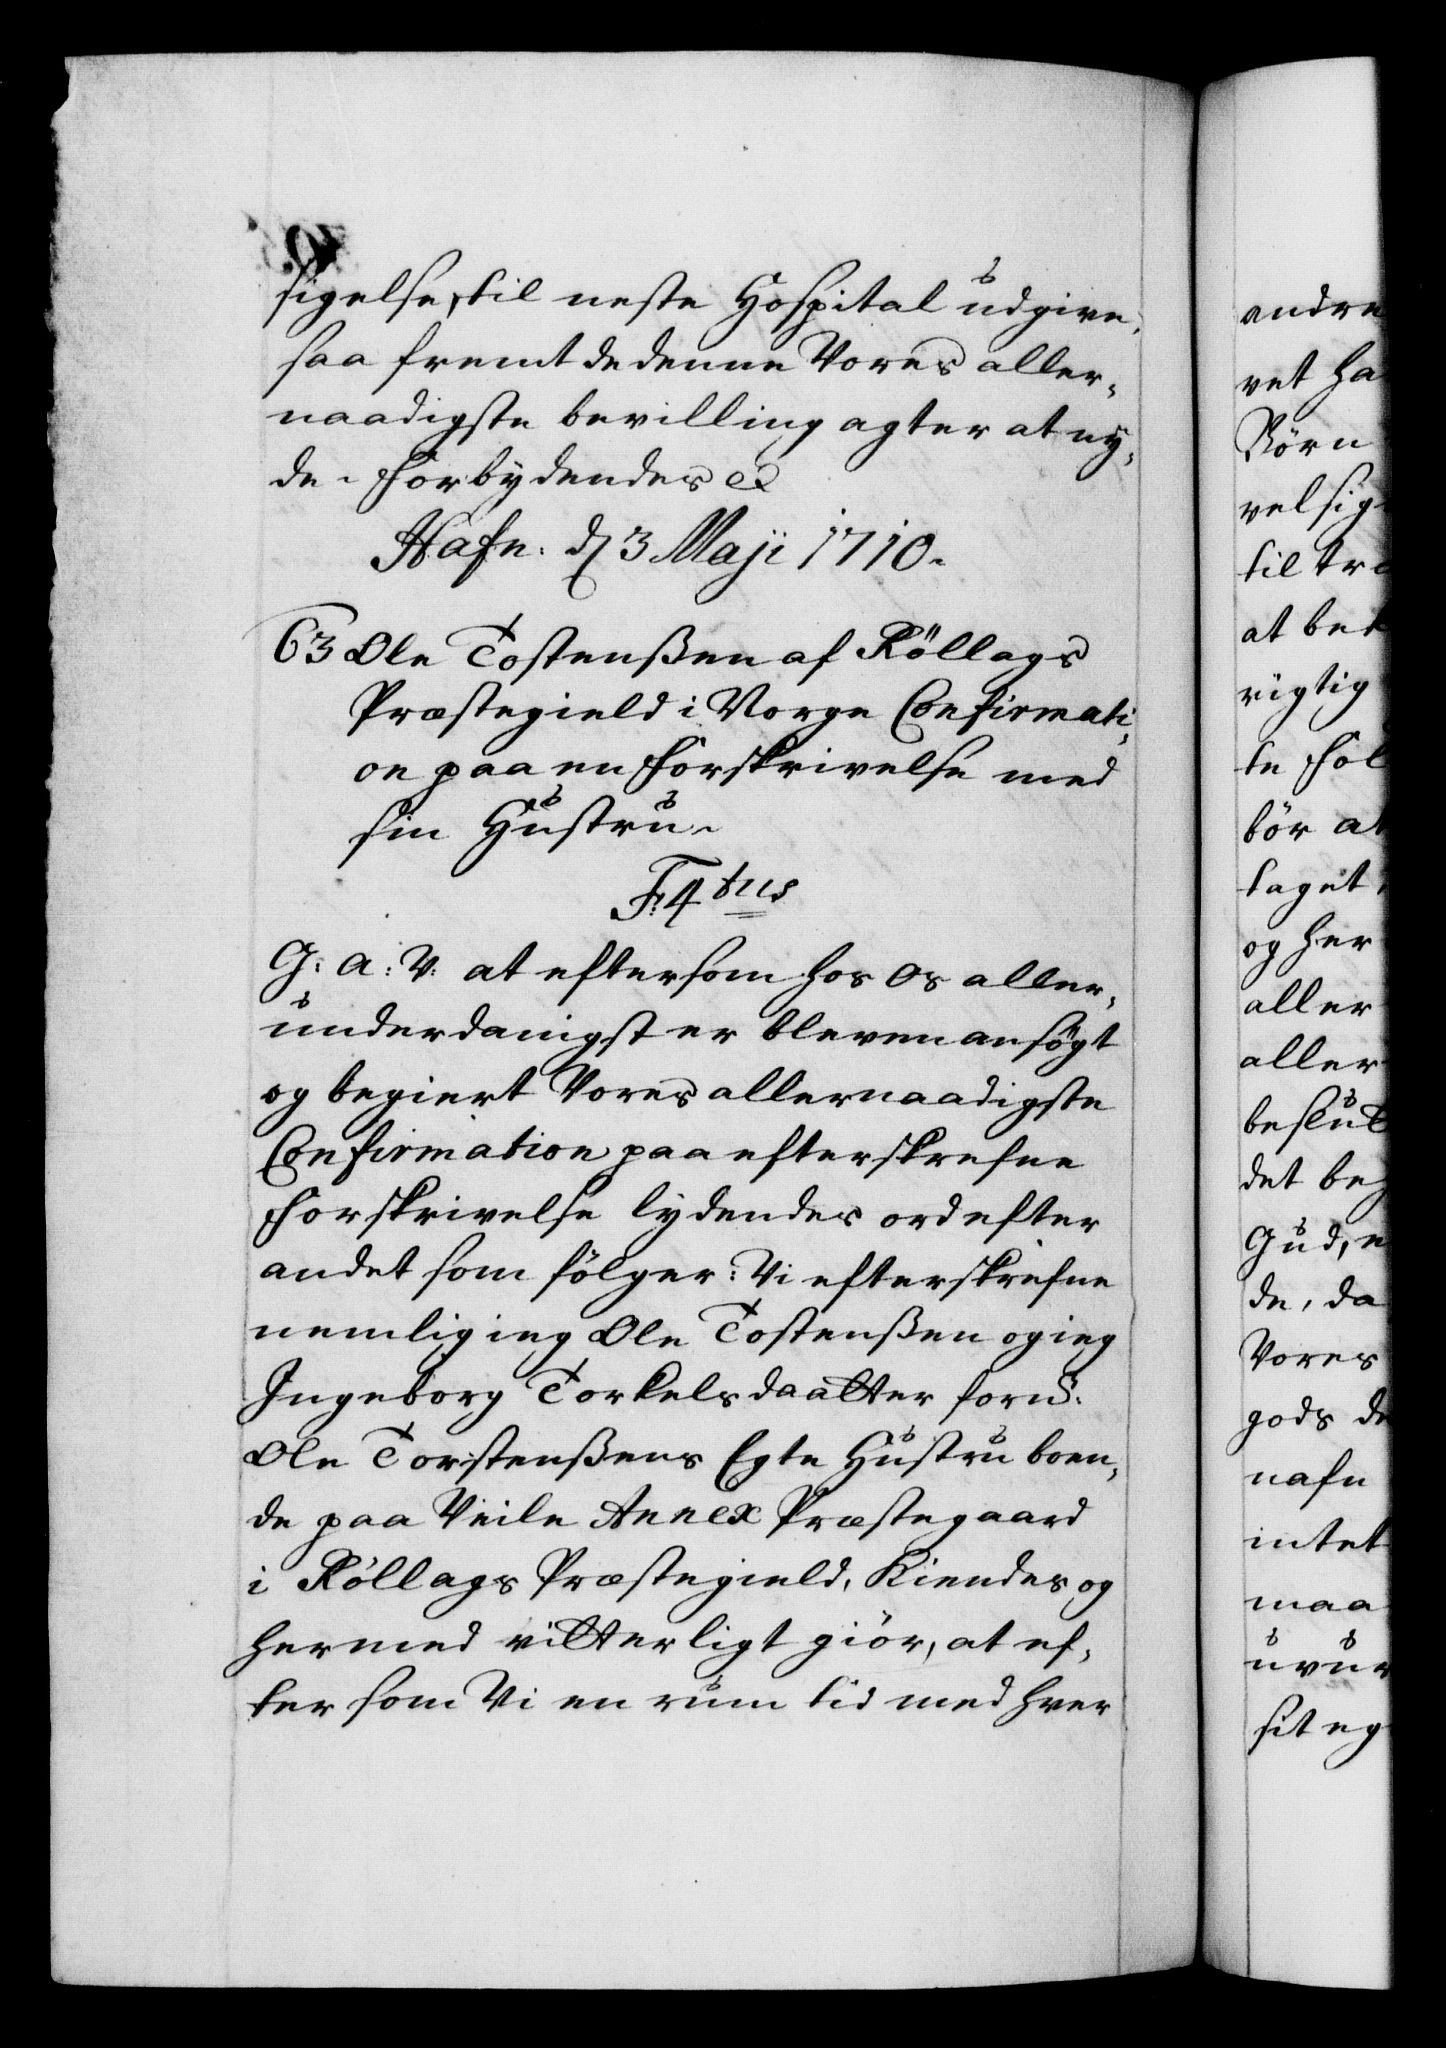 sigelse, til neste Hospital udgive,
saa fremt de denne Vores aller-
naadigste bevilling agter at ny-
de. Forbydendes &
Hafn: d 3 Maji 1710.
63 Ole Tostenßen af Röllags
Præstegield i Norge Confirmati-
on paa en Forskrivelse med
sin Hustru.
F: 4tus
G: A: V: at eftersom hos Os aller-
underdanigst er bleven ansögt
og begiert Vores allernaadigste
Confirmation paa efterskrefne
Forskrivelse lydendes ord efter
andet som fölger: Vi efterskrefne
nemlig ieg Ole Tostenßen og ieg
Ingeborg Torkelsdaatter forn:
Ole Torstenßens Egte Hustru boen-
de paa Veile Annex Præstegaard
i Röllags Præstegield, Kiendes og
hermed vitterligt giör, at ef-
ter som Vi en rum tid med hver
andre
vet ha
Börn
velsig
til tre
at bek
rigtig
te Föl
bör at
taget
og her
aller
aller
beslut
det beg
Gud, e
de, da
Vores
gods de
nafn
intet
maa
uvur
sit eg